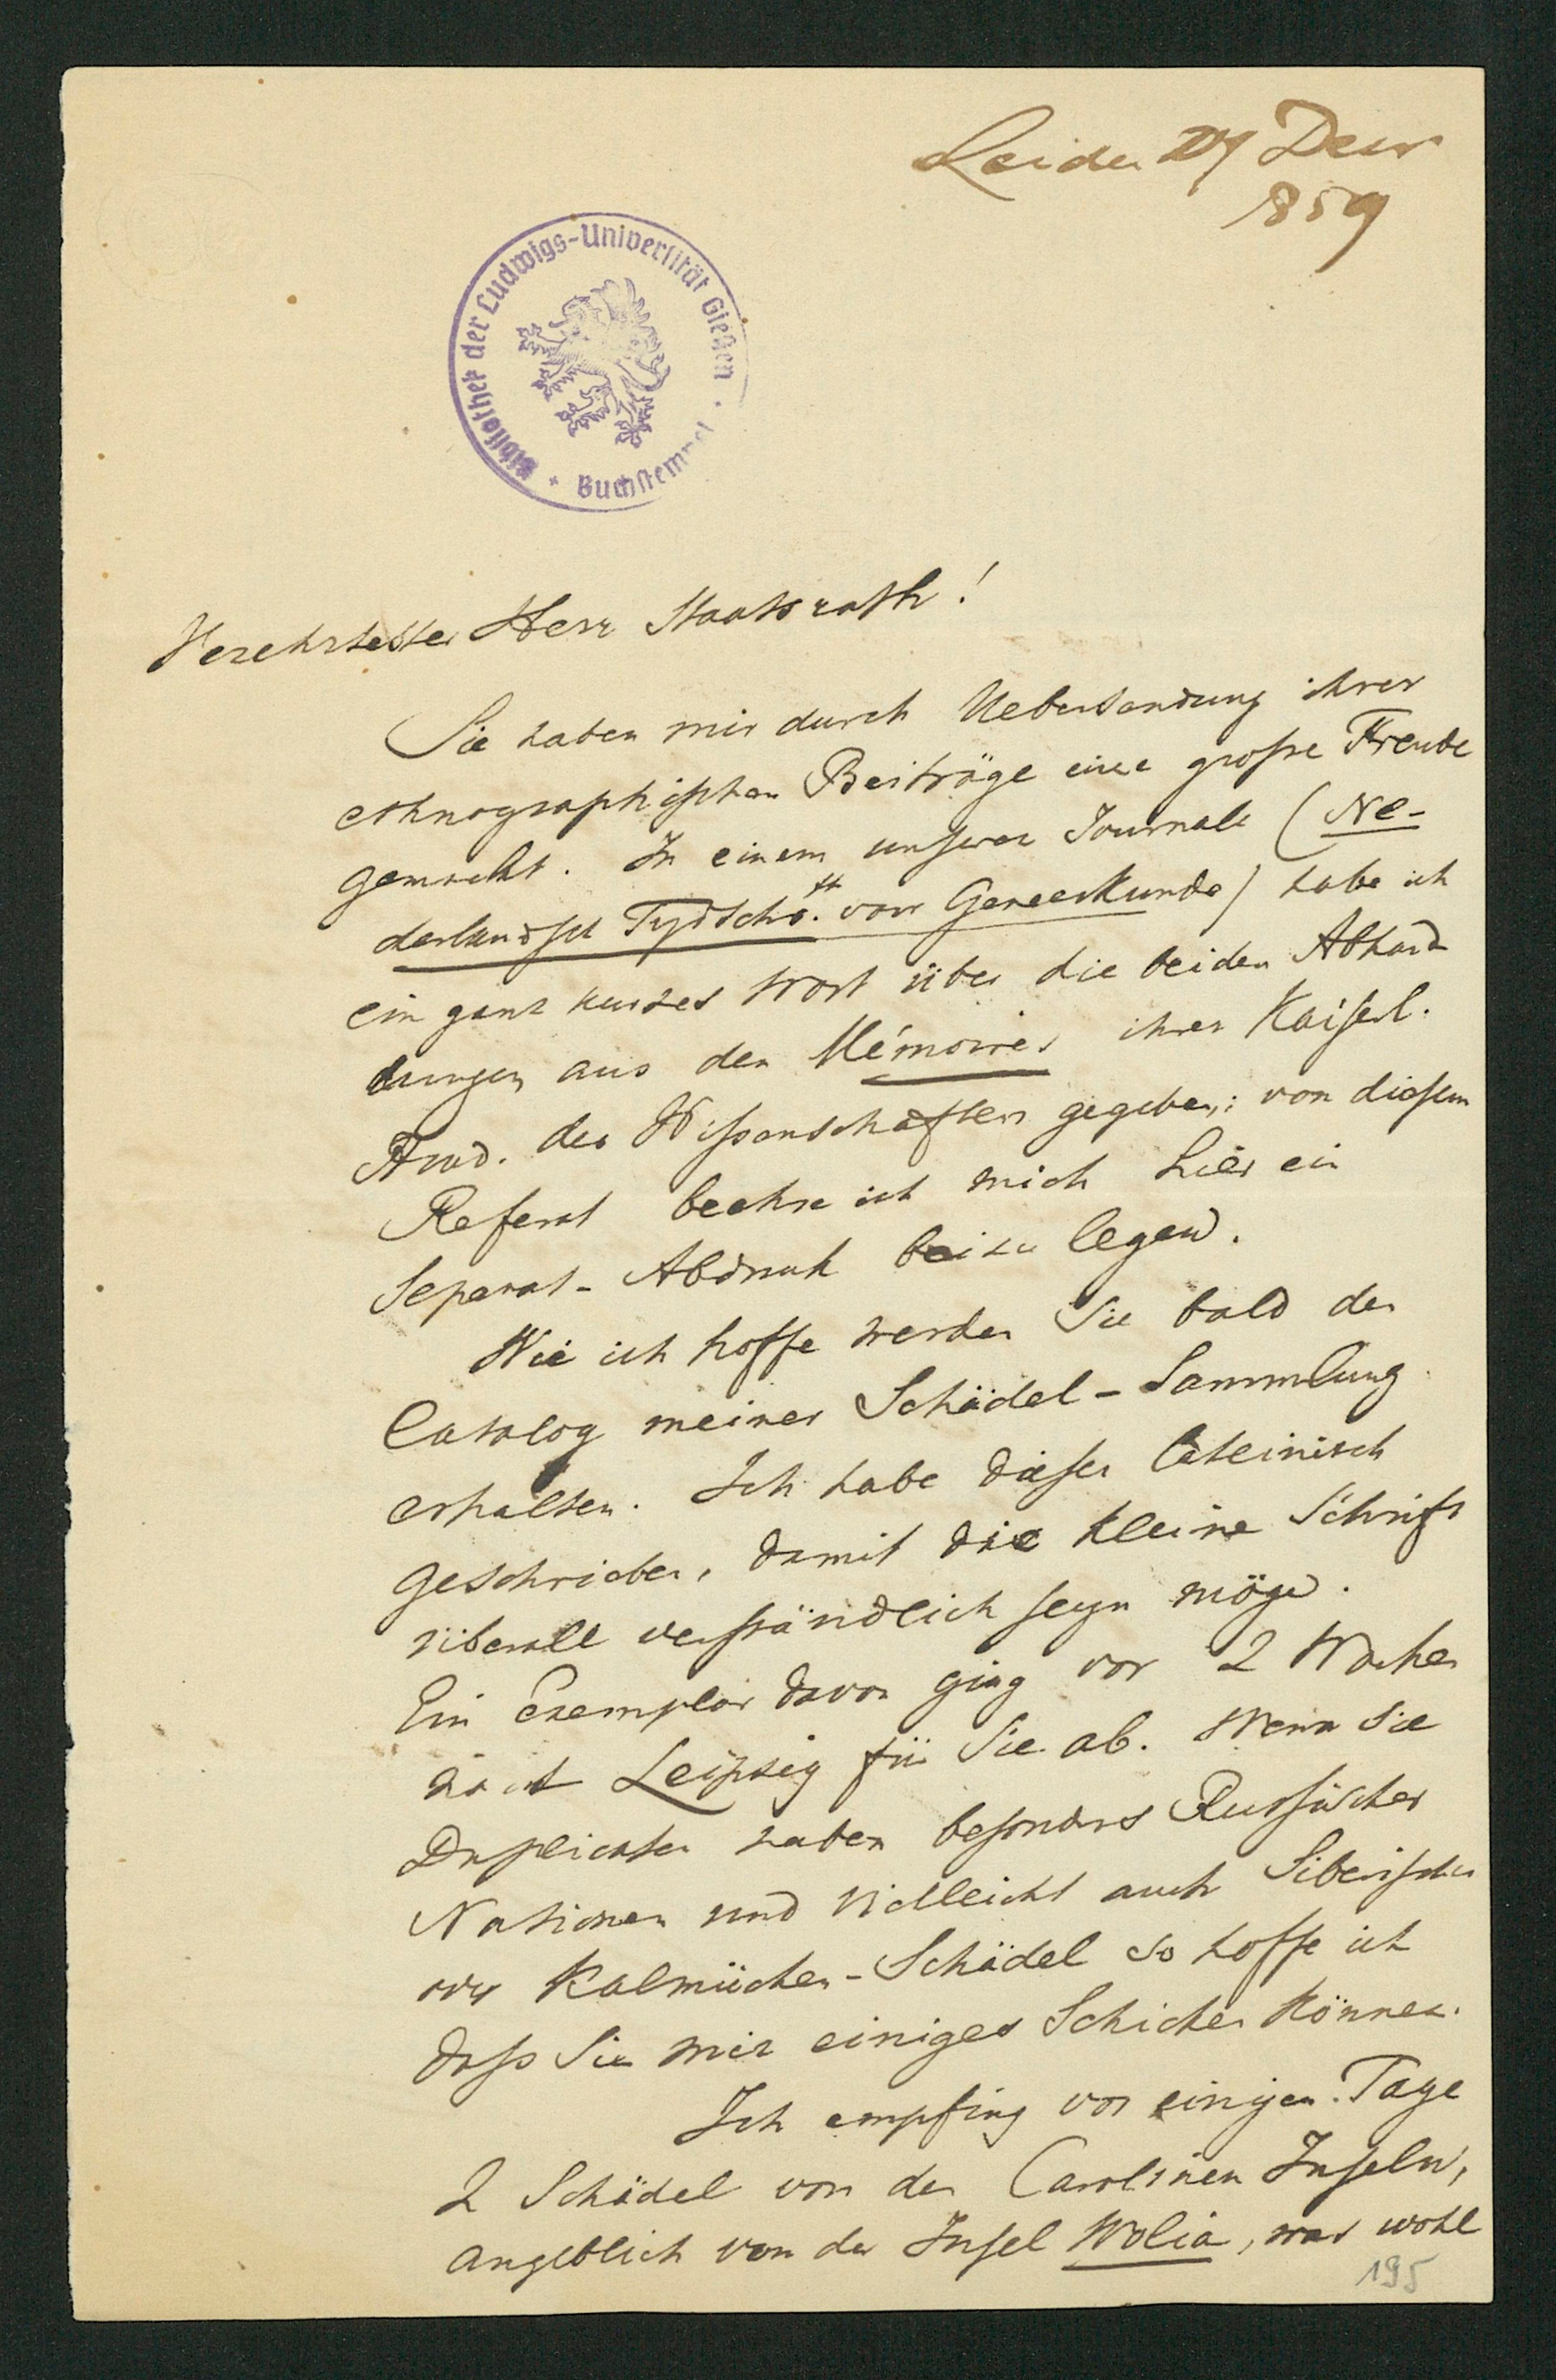 Leiden 27 Decr
1859
Bibliothek der Ludwigs-Universität Gießen
Buchstempel
Verehrtester Herr Staatsrath!
Sie haben mir durch Uebersendung ihrer
ethnographischen Beiträge eine grosse Freude
gemacht. In einem unserer Journale (Ne-
derlandsch Tydschr.ft voor Geneeskunde) habe ich
ein ganz kurzes Wort über die beiden Abhand
lungen aus den Mémoires ihrer Kaiserl.
Acad. der Wissenschaften gegeben; von diesem
Referat beehre ich mich hier ein
Separat-Abdruck beizu legen.
Wie ich hoffe werden Sie bald den
Catalog meiner Schädel-Sammlung
erhalten. Ich habe diesen lateinisch
geschrieben, damit die kleine Schrift
überall verständlich seyn möge.
Ein Exemplar davon ging vor 2 Wochen
nach Leipzig für Sie ab. Wenn Sie
Duplicaten haben besonders Russischer
Nationen und vielleicht auch Siberischer
oder Kalmücken-Schädel so hoffe ich
dass Sie mir einiges Schicken können.
Ich empfing vor einigen Tage
2 Schädel von den Carolinen Inseln,
angeblich von der Insel Wolia, was wohl
195